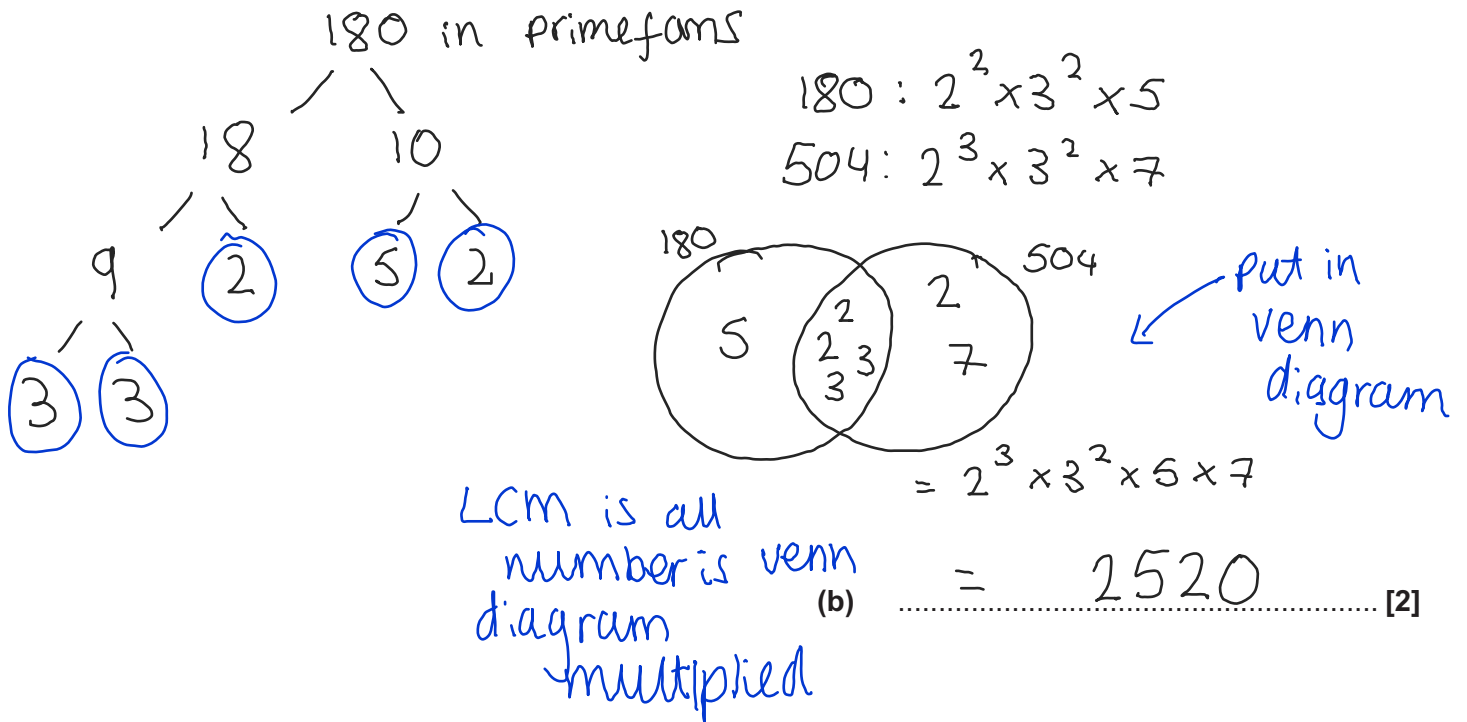 180 in primefans
18 10
9 2 5 2
3 3
180 : 2² × 3² × 5
504 : 2³ × 3² × 7
180
504
5
2
2 3
3
2
7
put in
venn
diagram
= 2³ × 3² × 5 × 7
LCM is all
number is venn
diagram
multiplied
(b) = 2520 [2]